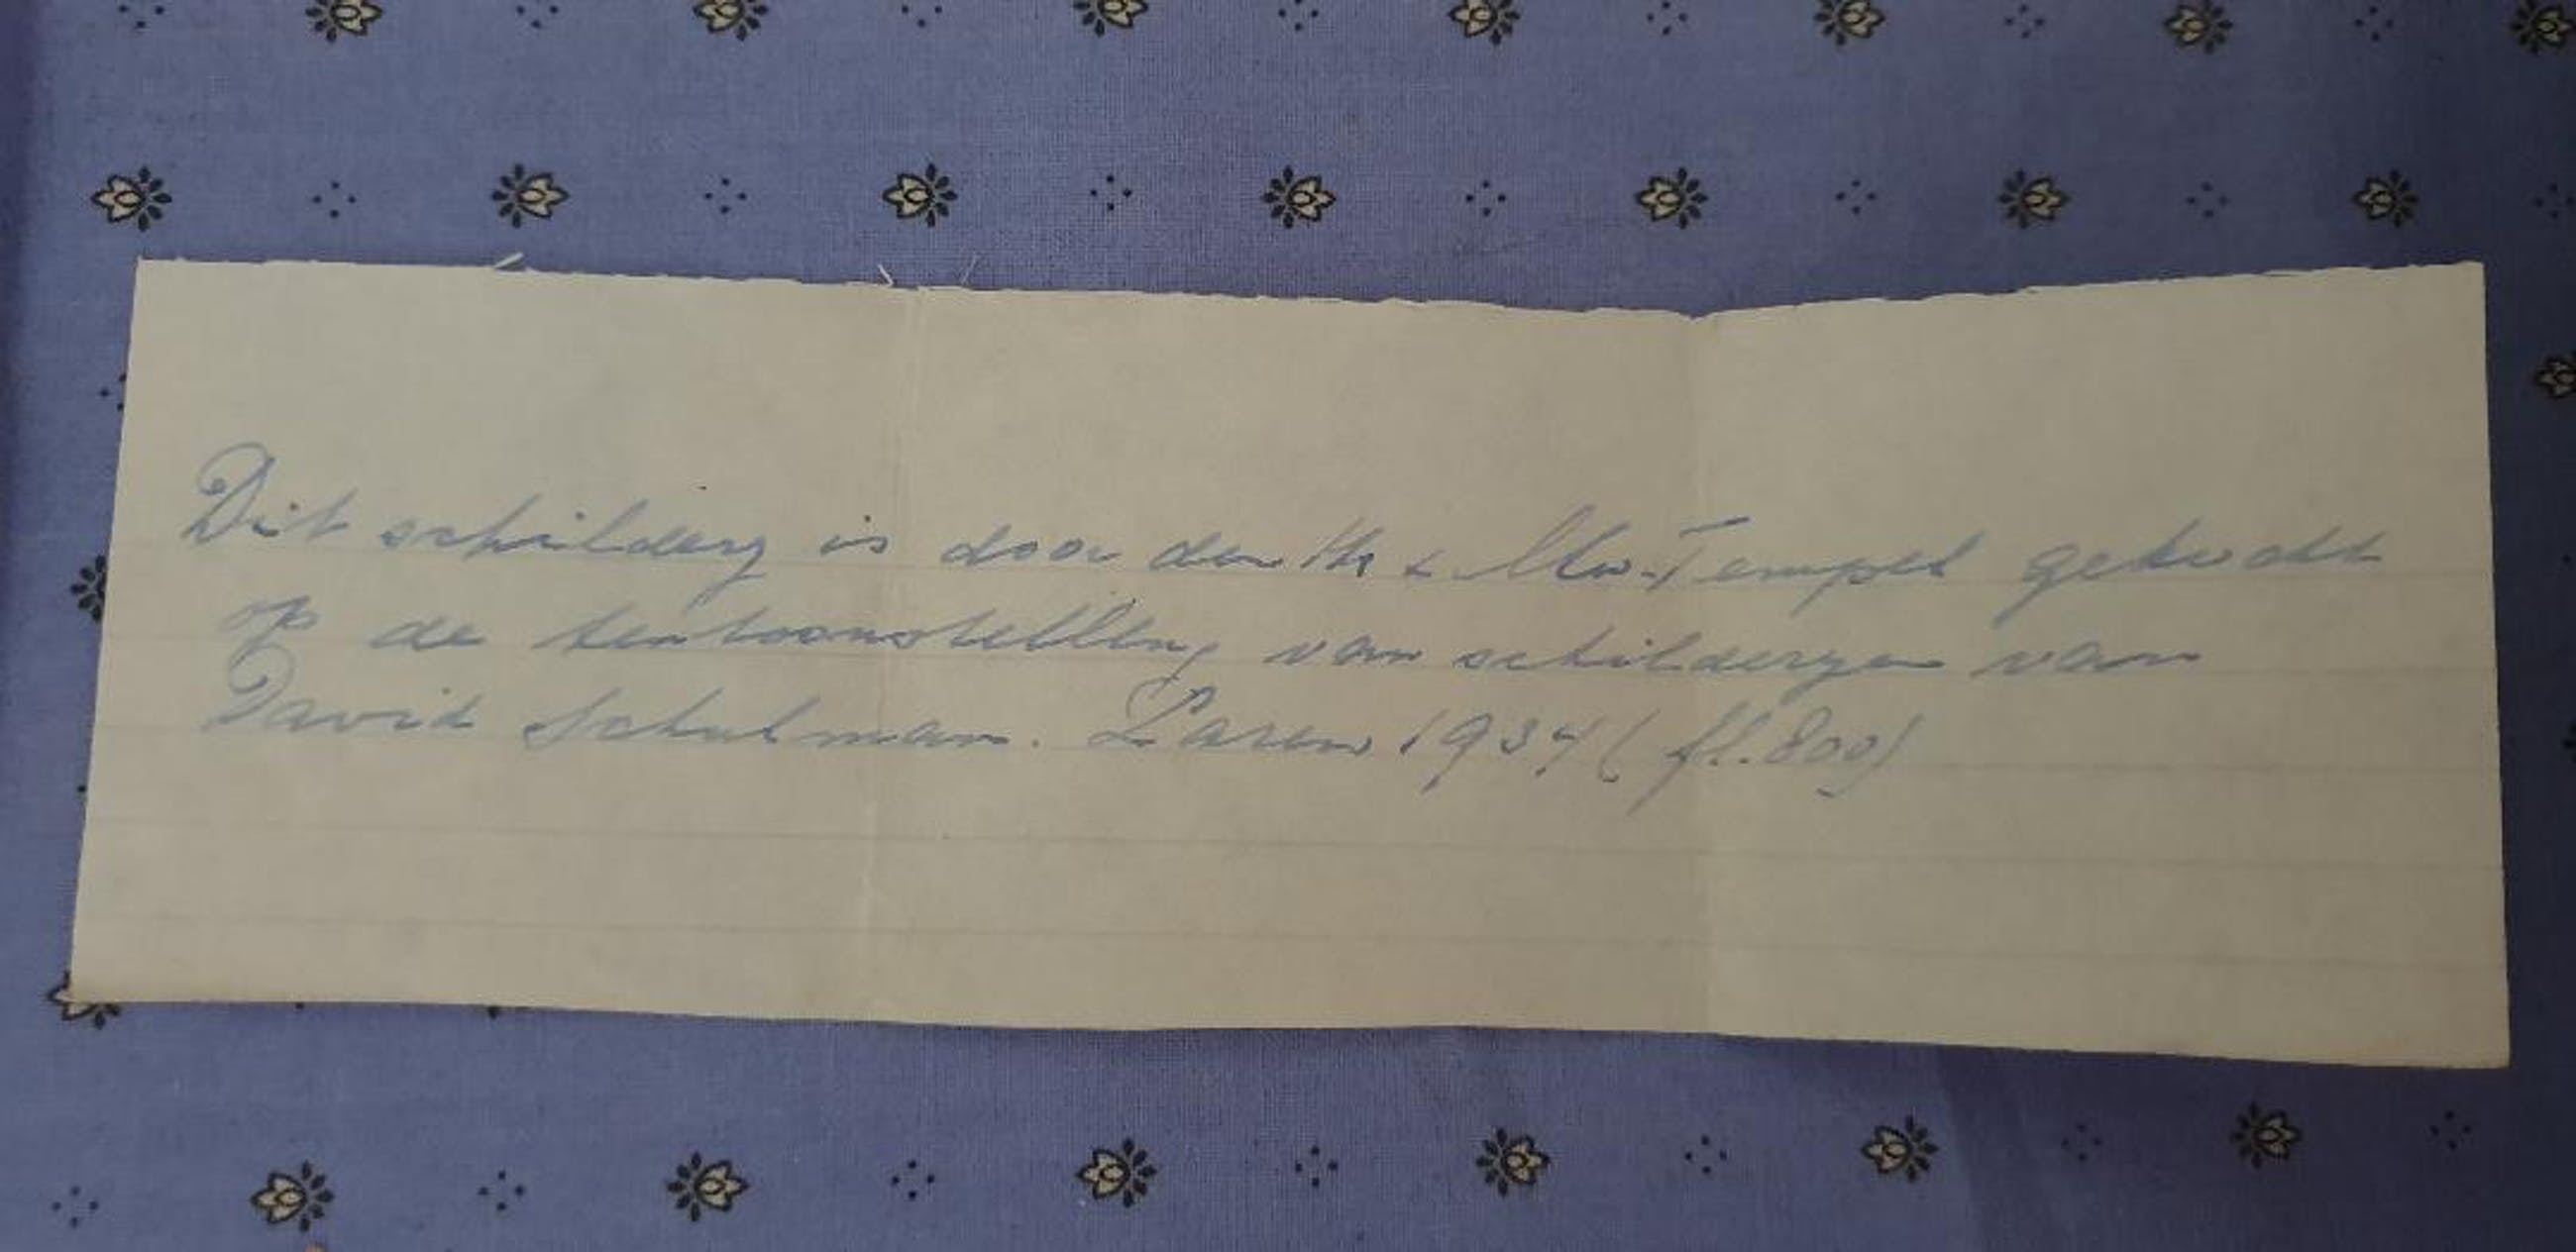 Dit schildery is door den Hr & Mw. Tempel gekocht
op de tentoonstelling van schilderyen van
David Schulman. Laren 1934 (fl. 800)